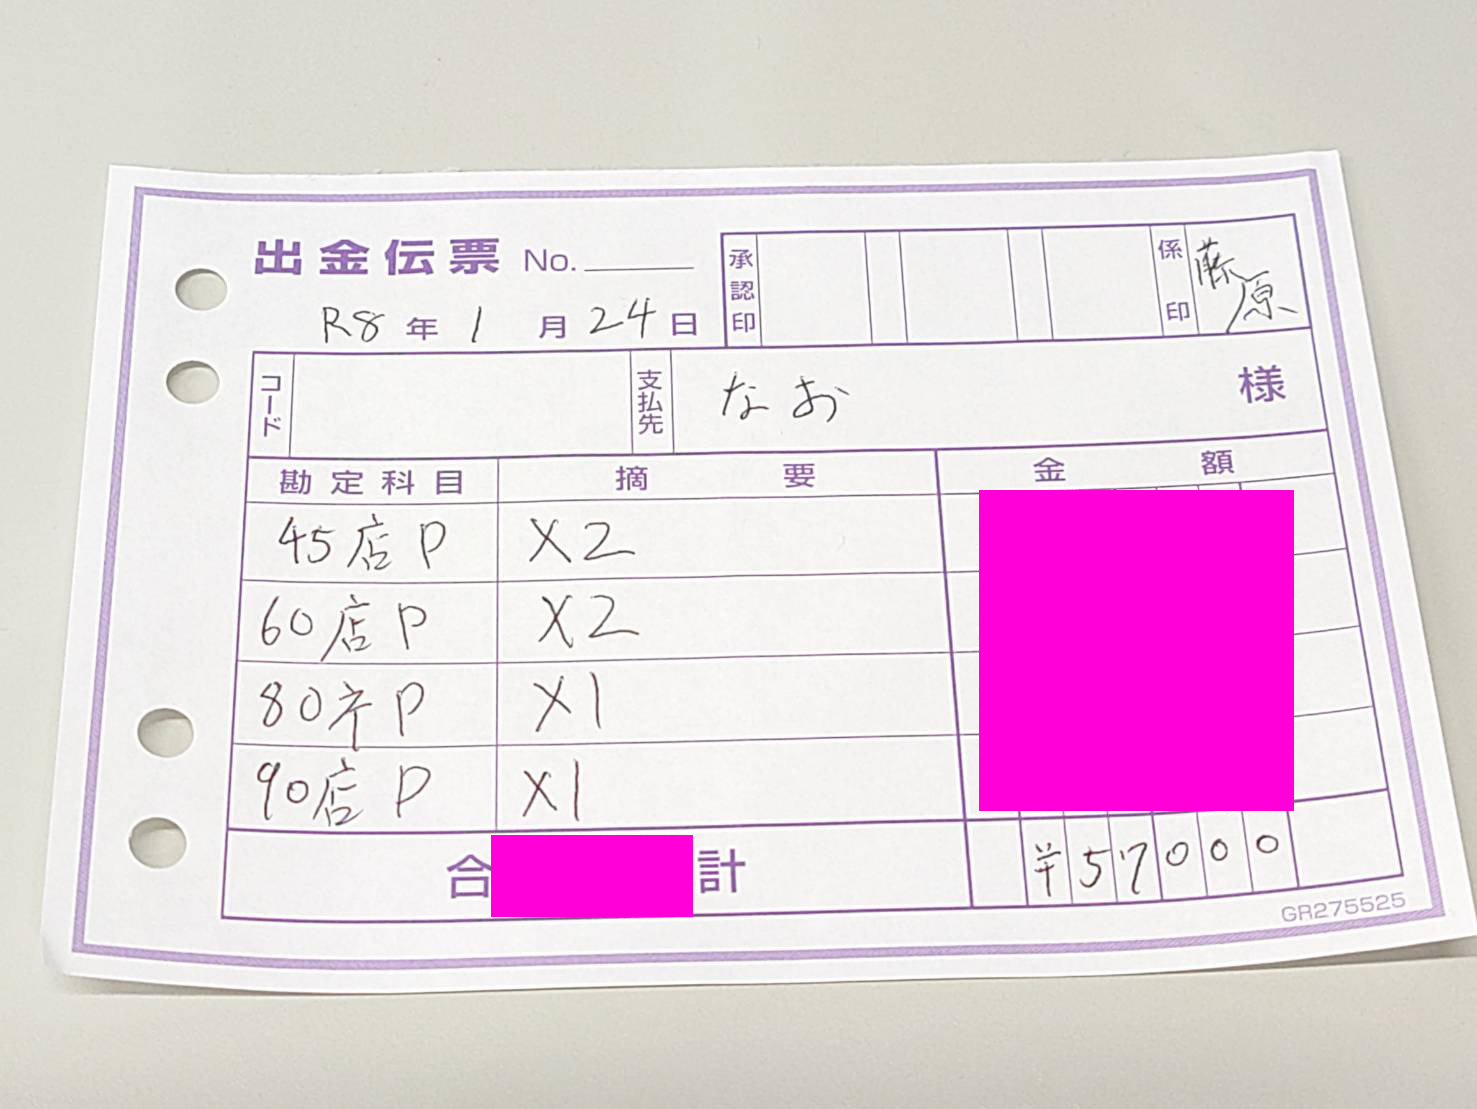 出金伝票 No.
R8年1月24日
承認印
係印 藤原
コード
支払先 なお 様
勘定科目 摘要 金額
45店P X2
60店P X2
80ネP X1
90店P X1
合計 ¥57000
GR275525